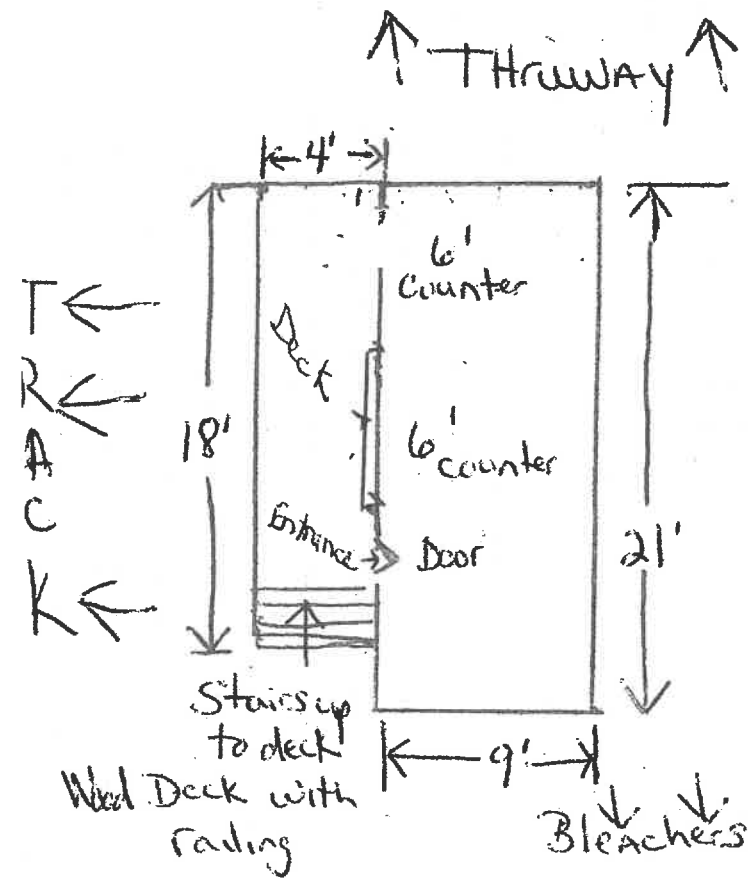 THRUWAY
4'
6'
counter
Deck
T
R
A
C
K
18'
6'
counter
Entrance
Door
21'
Stairs up
to deck
Wood Deck with
railing
9'
Bleachers